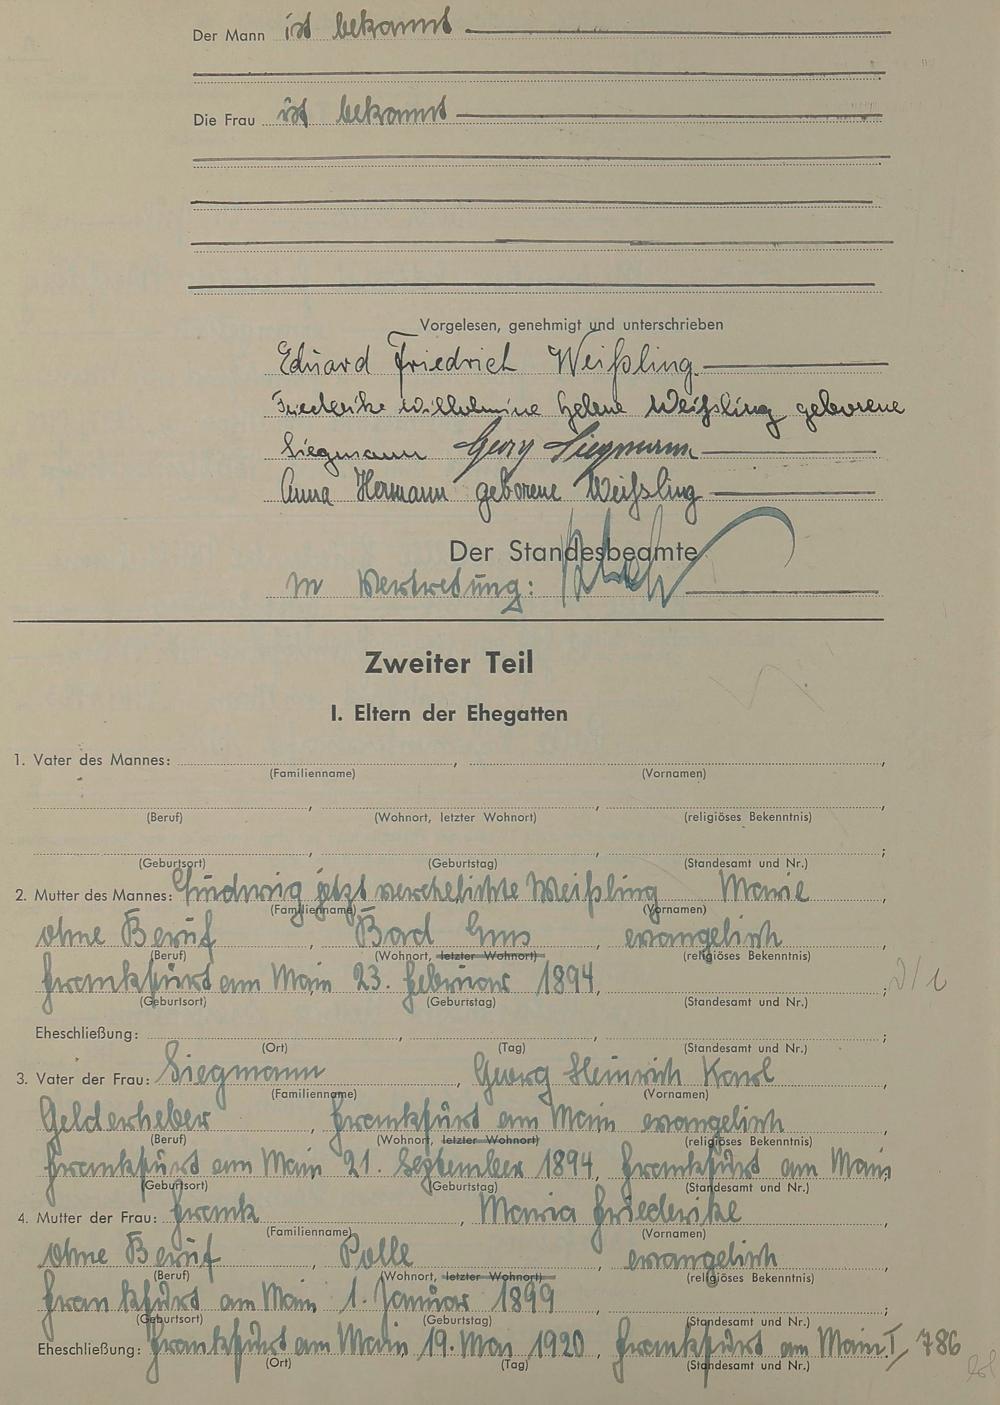 Der Mann ist bekannt
Die Frau ist bekannt
Vorgelesen, genehmigt und unterschrieben
Eduard Friedrich Weißling
Friederike Wilhelmine Helene Weißling geborene
Siegmann Georg Siegmann
Anna Hermann geborene Weißling
Der Standesbeamte
In Vertretung:
Zweiter Teil
I. Eltern der Ehegatten
1. Vater des Mannes: , ,
(Familienname) (Vornamen)
, , ,
(Beruf) (Wohnort, letzter Wohnort) (religiöses Bekenntnis)
, , ;
(Geburtsort) (Geburtstag) (Standesamt und Nr.)
2. Mutter des Mannes: Ludwig jetzt verehelichte Weißling Marie ,
(Familienname) (Vornamen)
ohne Beruf , Bad Ems , evangelisch
(Beruf) (Wohnort, letzter Wohnort) (religiöses Bekenntnis)
Frankfurt am Main 23. Februar 1894, ;
(Geburtsort) (Geburtstag) (Standesamt und Nr.)
Eheschließung: , , ;
(Ort) (Tag) (Standesamt und Nr.)
3. Vater der Frau: Siegmann , Georg Heinrich Karl ,
(Familienname) (Vornamen)
Gelderheber , Frankfurt am Main evangelisch ,
(Beruf) (Wohnort, letzter Wohnort) (religiöses Bekenntnis)
Frankfurt am Main 21. September 1894, Frankfurt am Main
(Geburtsort) (Geburtstag) (Standesamt und Nr.)
4. Mutter der Frau: Frank , Maria Friederike ,
(Familienname) (Vornamen)
ohne Beruf , Polle , evangelisch
(Beruf) (Wohnort, letzter Wohnort) (religiöses Bekenntnis)
Frankfurt am Main 1. Januar 1899 , ;
(Geburtsort) (Geburtstag) (Standesamt und Nr.)
Eheschließung: Frankfurt am Main 19. Mai 1920, Frankfurt am Main I/786
(Ort) (Tag) (Standesamt und Nr.)